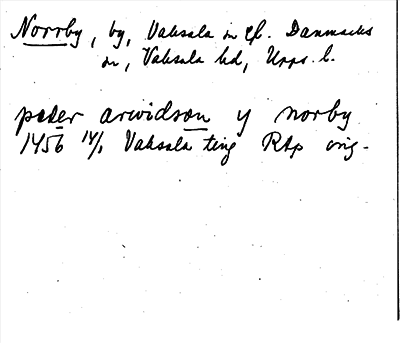 Norrby, by, Vaksala sn Ef. Danmarks
sn, Vaksala hd, Upps. l.
peder arwidson y norby
1456 14/1 Vaksala ting RAp orig.